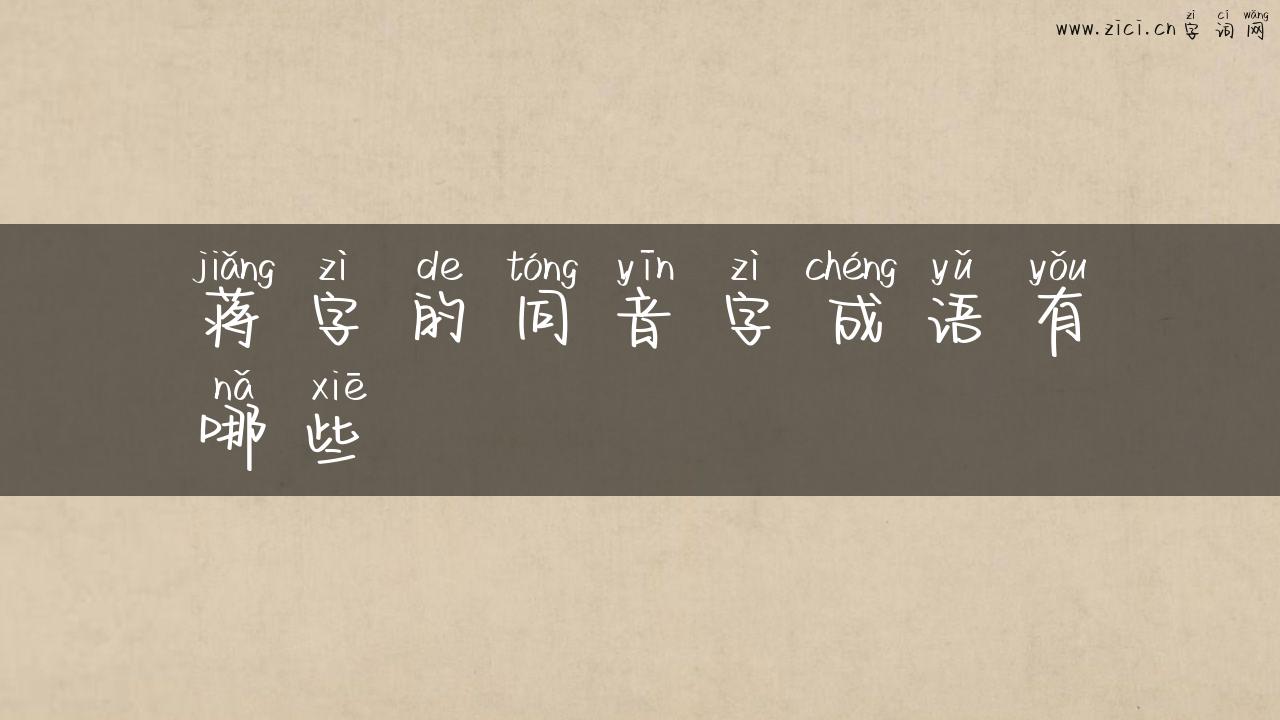 zì cí wǎng
www.zici.cn 字词网
jiǎng zì de tóng yīn zì chéng yǔ yǒu
蒋字的同音字成语有
nǎ xiē
哪些